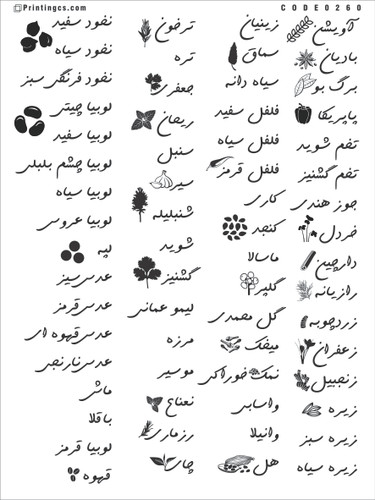 Printingcs.com
CODE0260
آویشن
بادیان
برگ بو
پاپریکا
تخم شوید
تخم گشنیز
جوز هندی
خردل
دارچین
رازیانه
زردچوبه
زعفران
زنجبیل
زیره
زیره سبز
زیره سیاه
زینیان
سماق
سیاه دانه
فلفل سفید
فلفل سیاه
فلفل قرمز
کاری
کنجد
ماسالا
گلپر
گل محمدی
میخک
نمک خوراکی
واسابی
وانیلا
هل
ترخون
تره
جعفری
ریحان
سنبل
سیر
شنبلیله
شوید
گشنیز
لیمو عمانی
مرزه
موسیر
نعناع
رزماری
چای
نخود سفید
نخود سیاه
نخود فرنگی سبز
لوبیا چیتی
لوبیا سفید
لوبیا چشم بلبلی
لوبیا سیاه
لوبیا عروسی
لپه
عدس سبز
عدس قرمز
عدس قهوه ای
عدس نارنجی
ماش
باقلا
لوبیا قرمز
قهوه